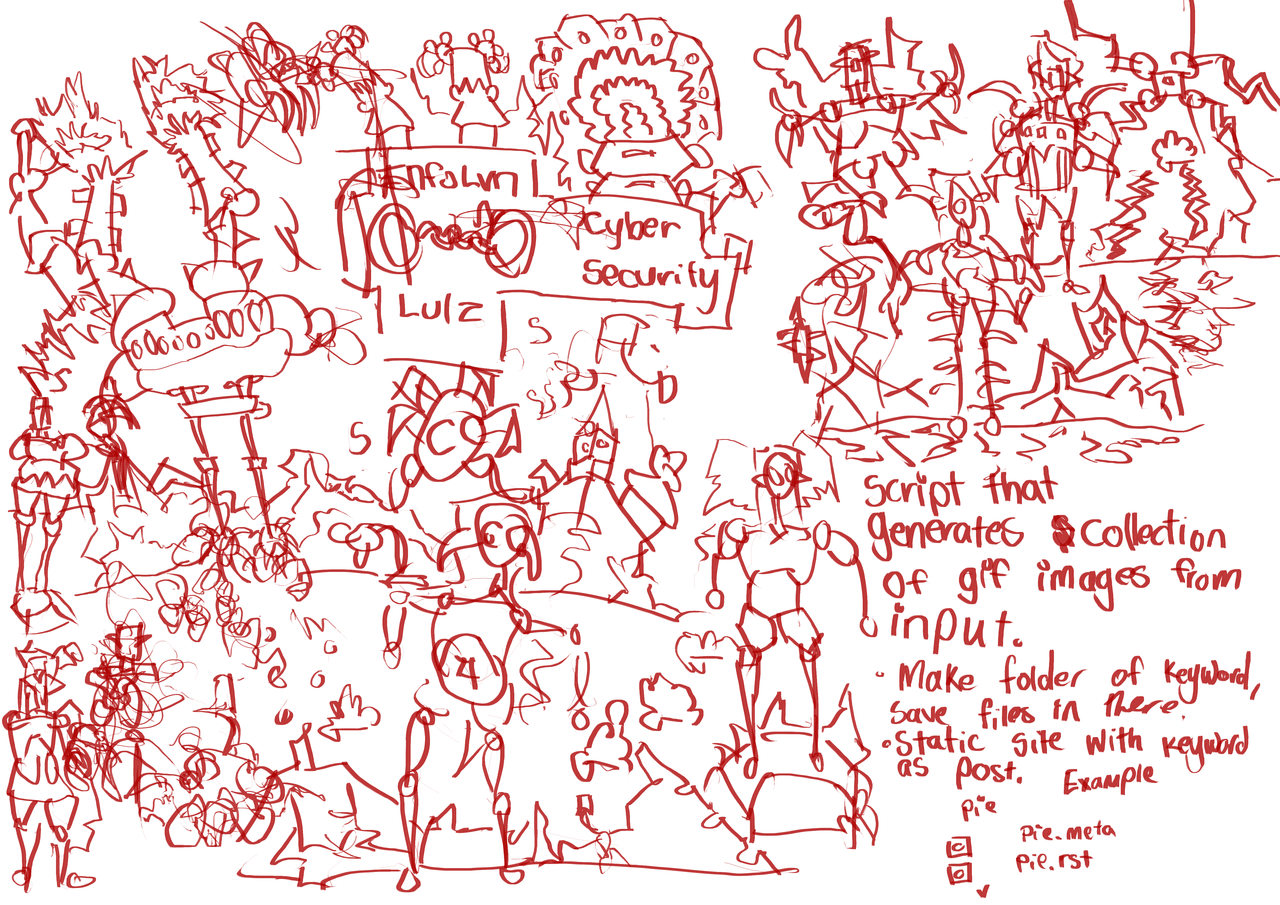 Cyber
Security
Lulz
S
S
D
4
Script that
generates collection
of gif images from
input.
• Make folder of keyword,
save files in there.
• Static site with keyword
as post. Example
pie
pie.meta
pie.rst